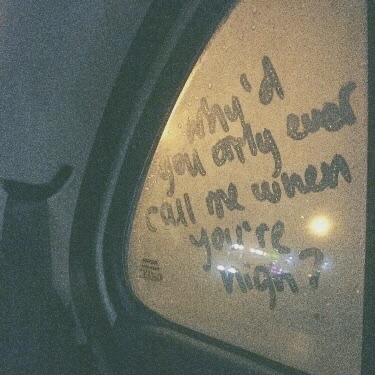 why'd
you only ever
call me when
you're
high?